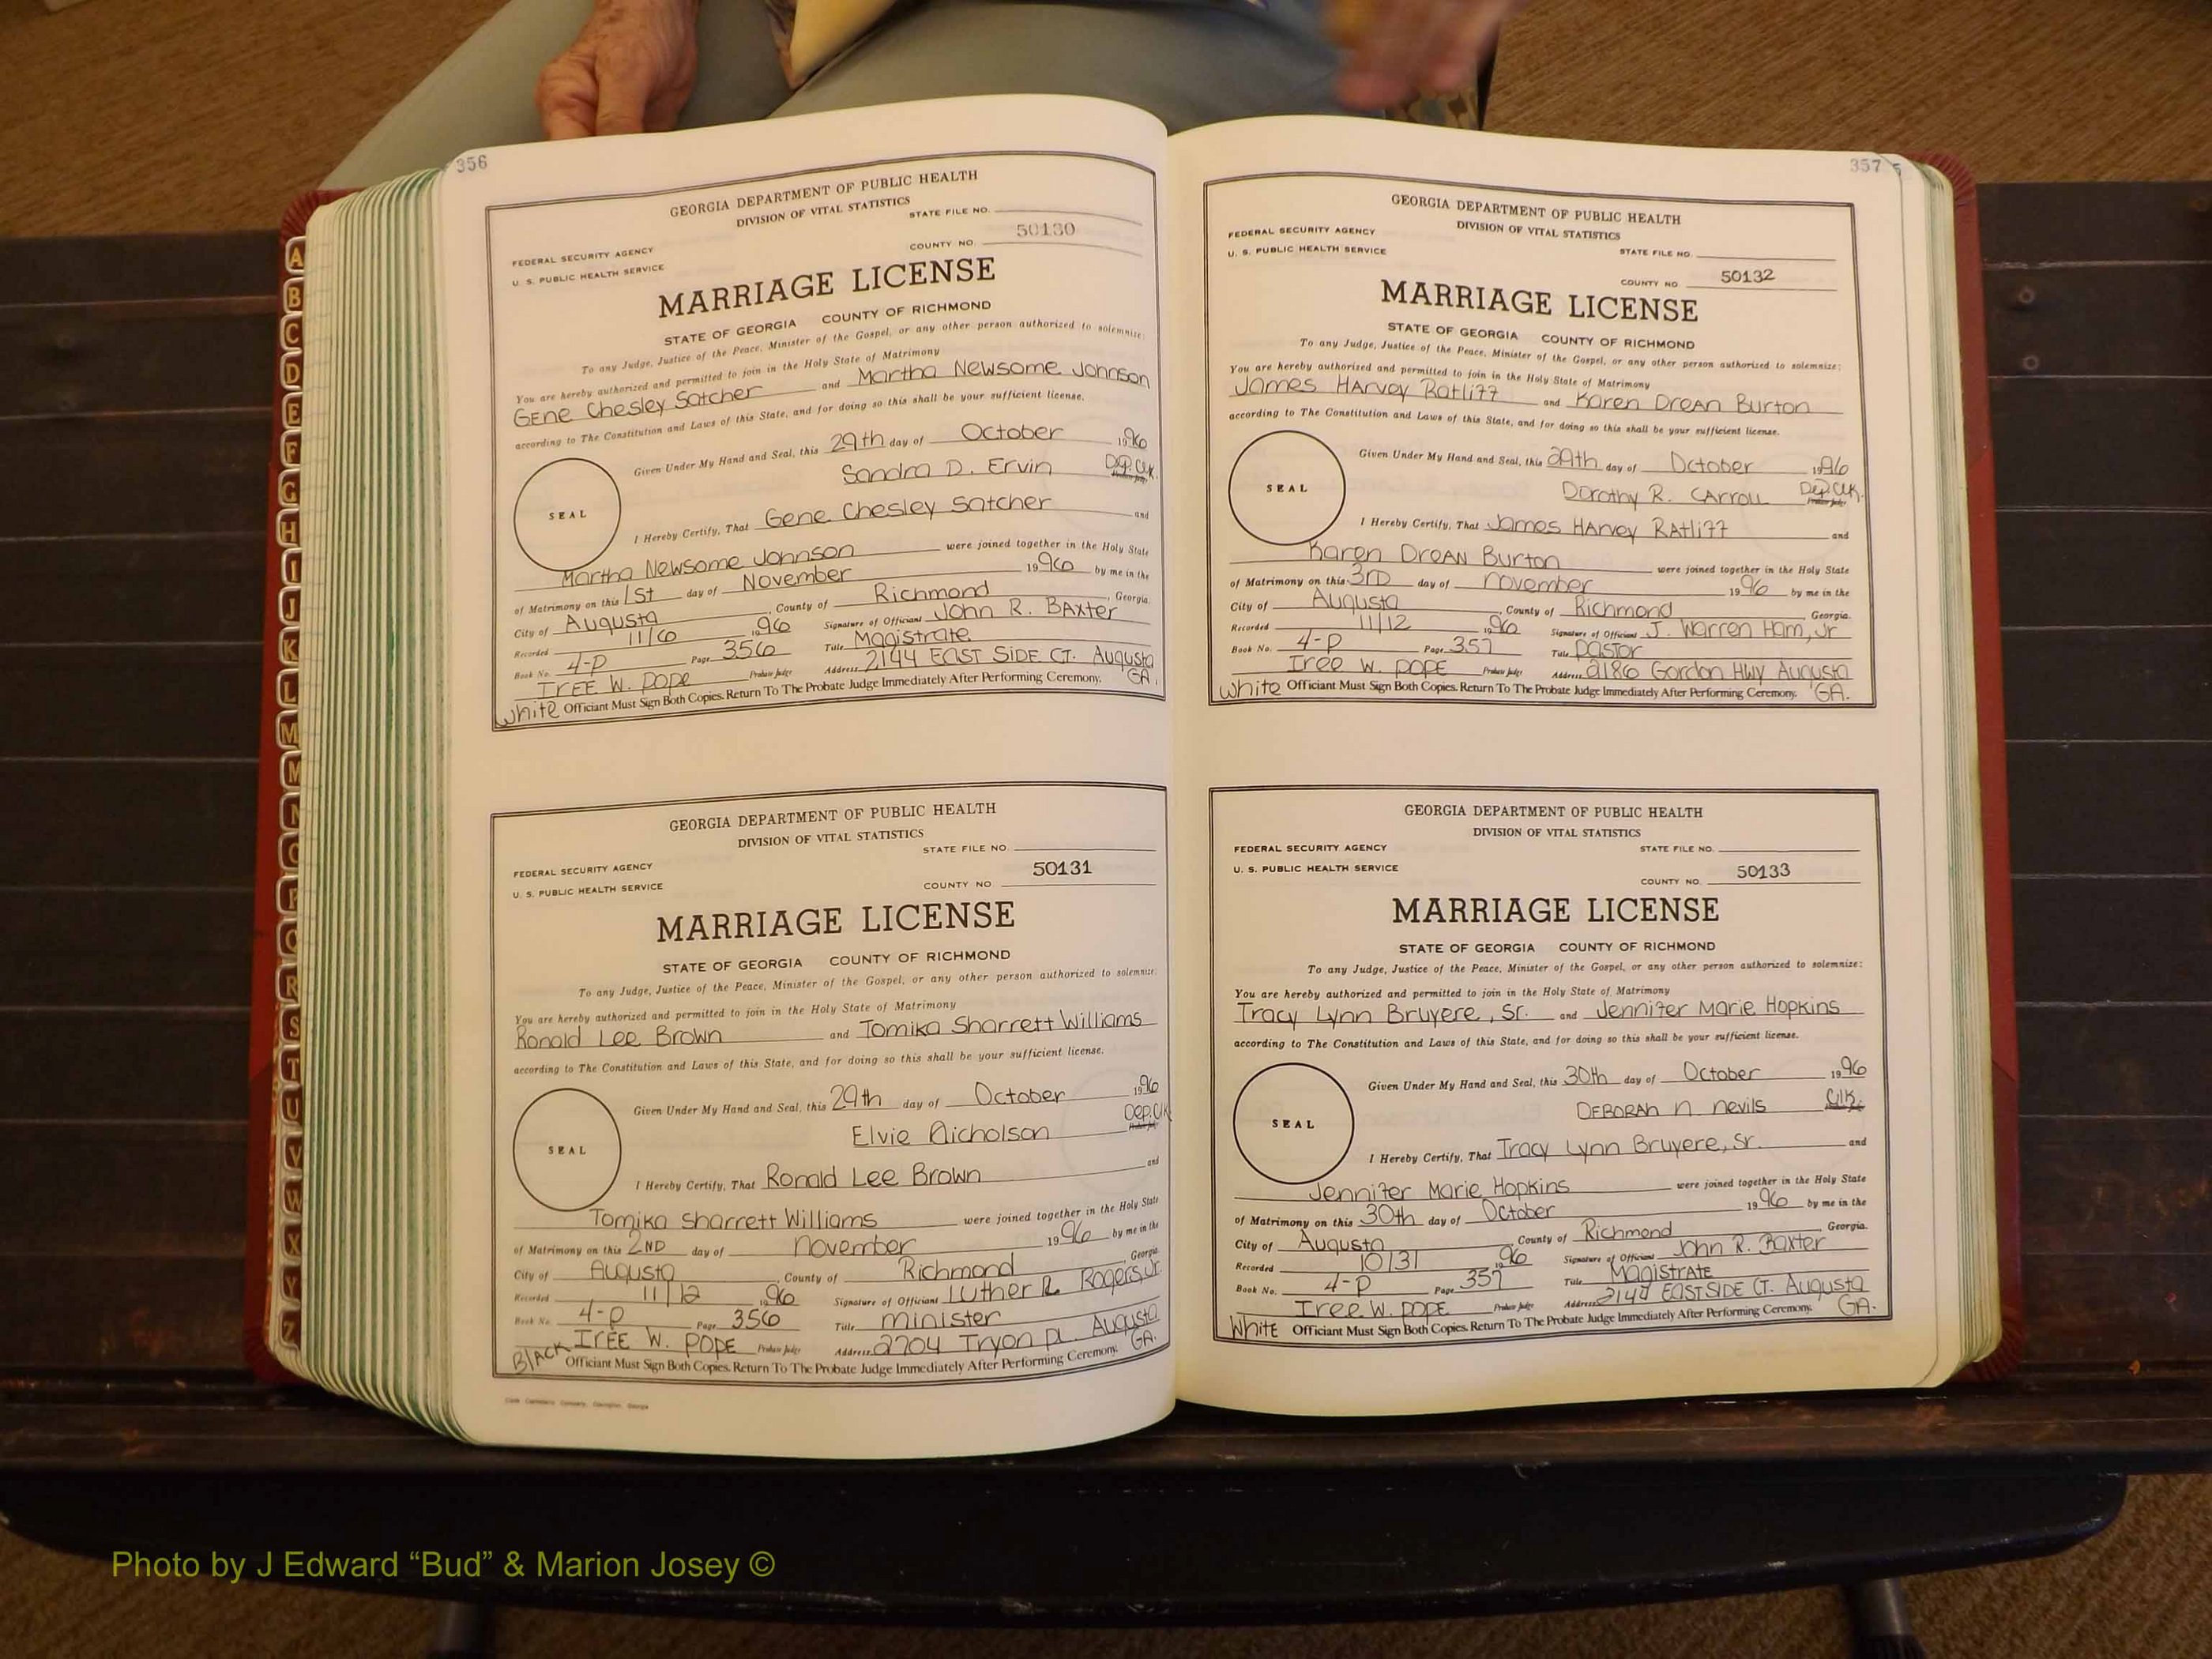 356
GEORGIA DEPARTMENT OF PUBLIC HEALTH
DIVISION OF VITAL STATISTICS
STATE FILE NO.
FEDERAL SECURITY AGENCY
U. S. PUBLIC HEALTH SERVICE
COUNTY NO. 50130
MARRIAGE LICENSE
STATE OF GEORGIA COUNTY OF RICHMOND
To any Judge, Justice of the Peace, Minister of the Gospel, or any other person authorized to solemnize:
You are hereby authorized and permitted to join in the Holy State of Matrimony
Gene Chesley Satcher and Martha Newsome Johnson
according to The Constitution and Laws of this State, and for doing so this shall be your sufficient license.
Given Under My Hand and Seal, this 29th day of October 1996
Sandra D. Ervin Dep. Clk.
SEAL
I Hereby Certify, That Gene Chesley Satcher and
Martha Newsome Johnson were joined together in the Holy State
of Matrimony on this 1st day of November 1996 by me in the
City of Augusta, County of Richmond, Georgia.
Recorded 11/6 1996 Signature of Officiant John R. Baxter
Book No. 4-P Page 356 Title Magistrate
Iree W. Pope Probate Judge Address 2144 East Side Ct. Augusta GA.
White Officiant Must Sign Both Copies. Return To The Probate Judge Immediately After Performing Ceremony.
GEORGIA DEPARTMENT OF PUBLIC HEALTH
DIVISION OF VITAL STATISTICS
STATE FILE NO.
FEDERAL SECURITY AGENCY
U. S. PUBLIC HEALTH SERVICE
COUNTY NO. 50131
MARRIAGE LICENSE
STATE OF GEORGIA COUNTY OF RICHMOND
To any Judge, Justice of the Peace, Minister of the Gospel, or any other person authorized to solemnize:
You are hereby authorized and permitted to join in the Holy State of Matrimony
Ronald Lee Brown and Tomika Sharrett Williams
according to The Constitution and Laws of this State, and for doing so this shall be your sufficient license.
Given Under My Hand and Seal, this 29th day of October 1996
Elvie Nicholson Dep. Clk
SEAL
I Hereby Certify, That Ronald Lee Brown and
Tomika Sharrett Williams were joined together in the Holy State
of Matrimony on this 2nd day of November 1996 by me in the
City of Augusta, County of Richmond Georgia.
Recorded 11/12 1996 Signature of Officiant Luther R. Rogers, Jr.
Book No. 4-P Page 356 Title Minister
Iree W. Pope Probate Judge Address 2704 Tryon Pl. Augusta GA.
Black Officiant Must Sign Both Copies. Return To The Probate Judge Immediately After Performing Ceremony.
357
GEORGIA DEPARTMENT OF PUBLIC HEALTH
DIVISION OF VITAL STATISTICS
FEDERAL SECURITY AGENCY
U. S. PUBLIC HEALTH SERVICE
STATE FILE NO.
COUNTY NO. 50132
MARRIAGE LICENSE
STATE OF GEORGIA COUNTY OF RICHMOND
To any Judge, Justice of the Peace, Minister of the Gospel, or any other person authorized to solemnize:
You are hereby authorized and permitted to join in the Holy State of Matrimony
James Harvey Ratliff and Karen Drean Burton
according to The Constitution and Laws of this State, and for doing so this shall be your sufficient license.
Given Under My Hand and Seal, this 29th day of October 1996
Dorothy R. Carroll Dep. Clk.
SEAL
I Hereby Certify, That James Harvey Ratliff and
Karen Drean Burton were joined together in the Holy State
of Matrimony on this 3rd day of November 1996 by me in the
City of Augusta, County of Richmond, Georgia.
Recorded 11/12 1996 Signature of Officiant J. Warren Ham, Jr
Book No. 4-P Page 357 Title Pastor
Iree W. Pope Probate Judge Address 2186 Gordon Hwy Augusta GA.
White Officiant Must Sign Both Copies. Return To The Probate Judge Immediately After Performing Ceremony.
GEORGIA DEPARTMENT OF PUBLIC HEALTH
DIVISION OF VITAL STATISTICS
FEDERAL SECURITY AGENCY
STATE FILE NO.
U. S. PUBLIC HEALTH SERVICE
COUNTY NO. 50133
MARRIAGE LICENSE
STATE OF GEORGIA COUNTY OF RICHMOND
To any Judge, Justice of the Peace, Minister of the Gospel, or any other person authorized to solemnize:
You are hereby authorized and permitted to join in the Holy State of Matrimony
Tracy Lynn Bruyere, Sr. and Jennifer Marie Hopkins
according to The Constitution and Laws of this State, and for doing so this shall be your sufficient license.
Given Under My Hand and Seal, this 30th day of October 1996
Deborah N. Nevils Clk.
SEAL
I Hereby Certify, That Tracy Lynn Bruyere, Sr. and
Jennifer Marie Hopkins were joined together in the Holy State
of Matrimony on this 30th day of October 1996 by me in the
City of Augusta, County of Richmond Georgia.
Recorded 10/31 1996 Signature of Officiant John R. Baxter
Book No. 4-P Page 357 Title Magistrate
Iree W. Pope Probate Judge Address 2144 Eastside Ct. Augusta GA.
White Officiant Must Sign Both Copies. Return To The Probate Judge Immediately After Performing Ceremony.
A
B
C
D
E
F
G
H
I
J
K
L
M
M
N
O
P
Q
R
S
T
U
V
W
X
Y
Z
Photo by J Edward “Bud” & Marion Josey ©